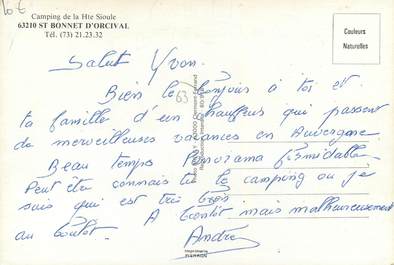 10 €
Camping de la Hte Sioule
63210 ST BONNET D'ORCIVAL
Tél. (73) 21.23.32
Couleurs
Naturelles
Salut Yvon.
Bien le bonjour à toi et
ta famille d'un chauffeur qui passent
de merveilleuses vacances en Auvergne
Beau temps Panorama formidable
Peut être connais tu le camping ou je
suis qui est très bien
A bientôt mais malheureusement
au boulot.
André
63
PIERRON